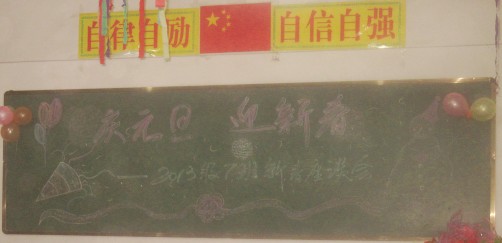 自律自励 自信自强
庆元旦 迎新春
——2013级7班新春座谈会